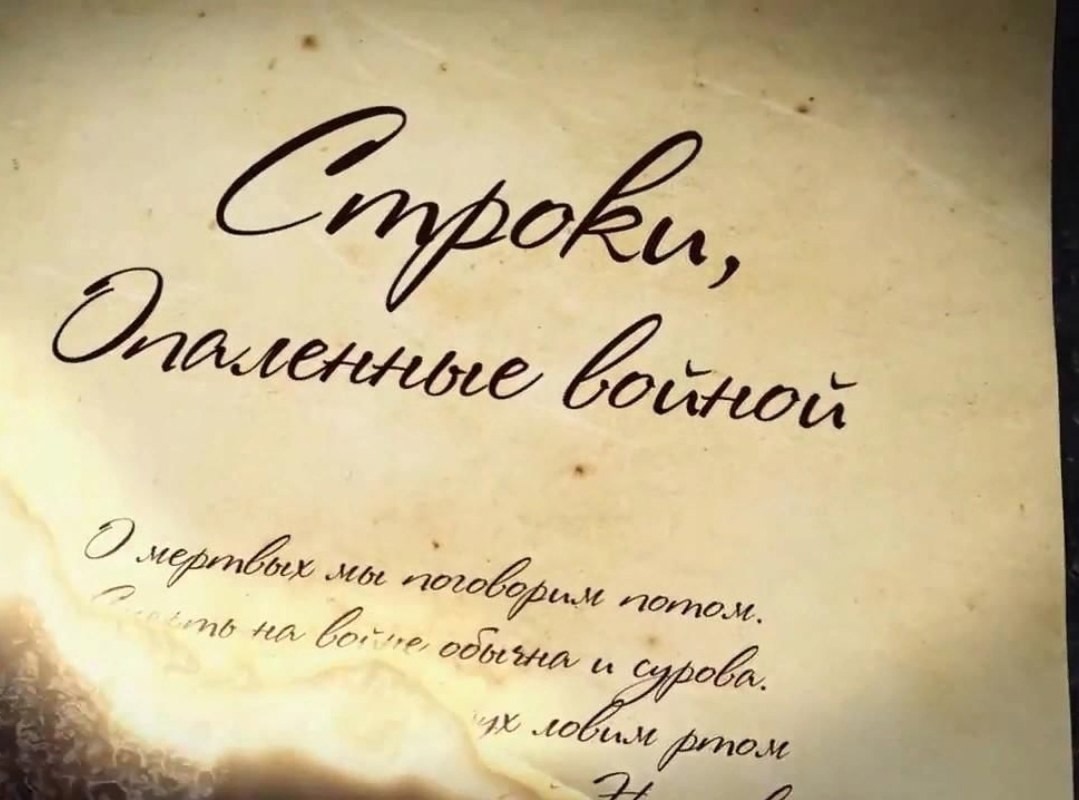 Строки,
Опаленные войной
О мертвых мы поговорим потом.
Смерть на войне обычна и сурова.
ловим ртом